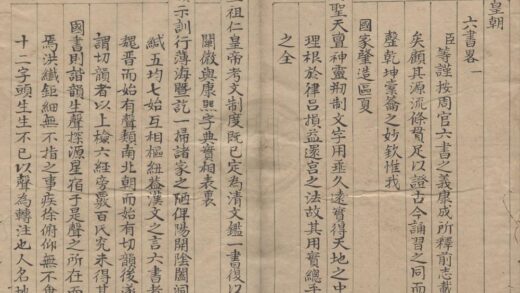 皇朝
六書畧一
臣等謹按周官六書之義康成所釋前志載
矣顧其源流條貫足以證古今誦習之同而
罄乾坤橐籥之妙欽惟我
國家肇造區夏
聖天亶神靈刱制文字用垂久遠實得天地之中
理根於律呂損益還宮之法故其用實總
之全
祖仁皇帝考文制度既已定為清文鑑一書復以
闡微與康熙字典實相表裏
示訓行薄海暨訖一掃諸家之陋俾陽開陰闔洞
緘五均七始互相樞紐蓋漢文之言六書者
魏晉而始有聲類南北朝而始有切韻後遂
謂切韻者以上檢六經旁覈百氏究未得其
國書則諧韻生聲探源星宿于是聲之所在而
焉洪纖鉅細無不指之事疾徐俯仰無不會
十二字頭生生不已以聲為轉注也人名地